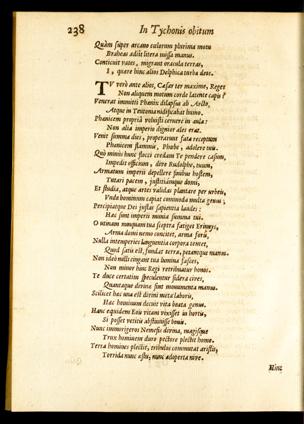 238
In Tychonis obitum
Quàm super arcano cælorum plurima motu
Braheas adsit litera missa manus.
Conticuit vates, migrant oracula terras,
I, quære hinc alios Delphica turba deos.
Tu verò ante alios, Cæsar ter maxime, Reges
Non aliquem motum corde latente capis?
Venerat immitti Phœnix dilapsus ab Arcto,
Atque in Teutonia nidificabat humo.
Phœnicem propriâ voluisti cernere in aula:
Non aliâ imperio dignior ales erat.
Venit summa dies, properarunt fata receptum
Phœnicem flammis, Phœbe, adolere tuis.
Quò minùs hunc flocci credam Te pendere casum,
Impedit officium, dive Rudolphe, tuum,
Armatum imperii depellere finibus hostem,
Tutari pacem, justitiamque domi,
Et studia, atque artes validas plantare per urbeis,
Unde hominum capiat commoda multa genus;
Percipiatque Dei justas sapientia laudes:
Hac sunt imperii munia summa tui.
O utinam nunquam tua sceptra fatiget Erinnys,
Arma domi nemo concitet, arma foris,
Nulla intemperies languentia corpora tentet,
Quod satis est, fundat terra, petamque manus.
Non ideò nulli cingant tua lumina fasces,
Non minor hinc Regi retribuatur honos.
Te duce certatim speculentur sidera cives,
Quantaque divina sint monumenta manus.
Scilicet hac una est divini meta laboris,
Hac hominum decuit vita beata genus.
Hanc equidem Eoüs vitam vixisset in hortis,
Si posset vetitis abstinuisse bonis.
Nunc immorigeros Nemesis divina, magisque
Trux hominem duro pectore plectit homo.
Terra homines plectit, tribulos commutat aristis,
Torrida nunc æstu, nunc adoperta nive.
Hinc